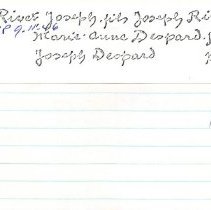 Rivet Joseph, fils Joseph Ri
P 9-11-06
Marie-Anne Despard, f
Joseph Despard